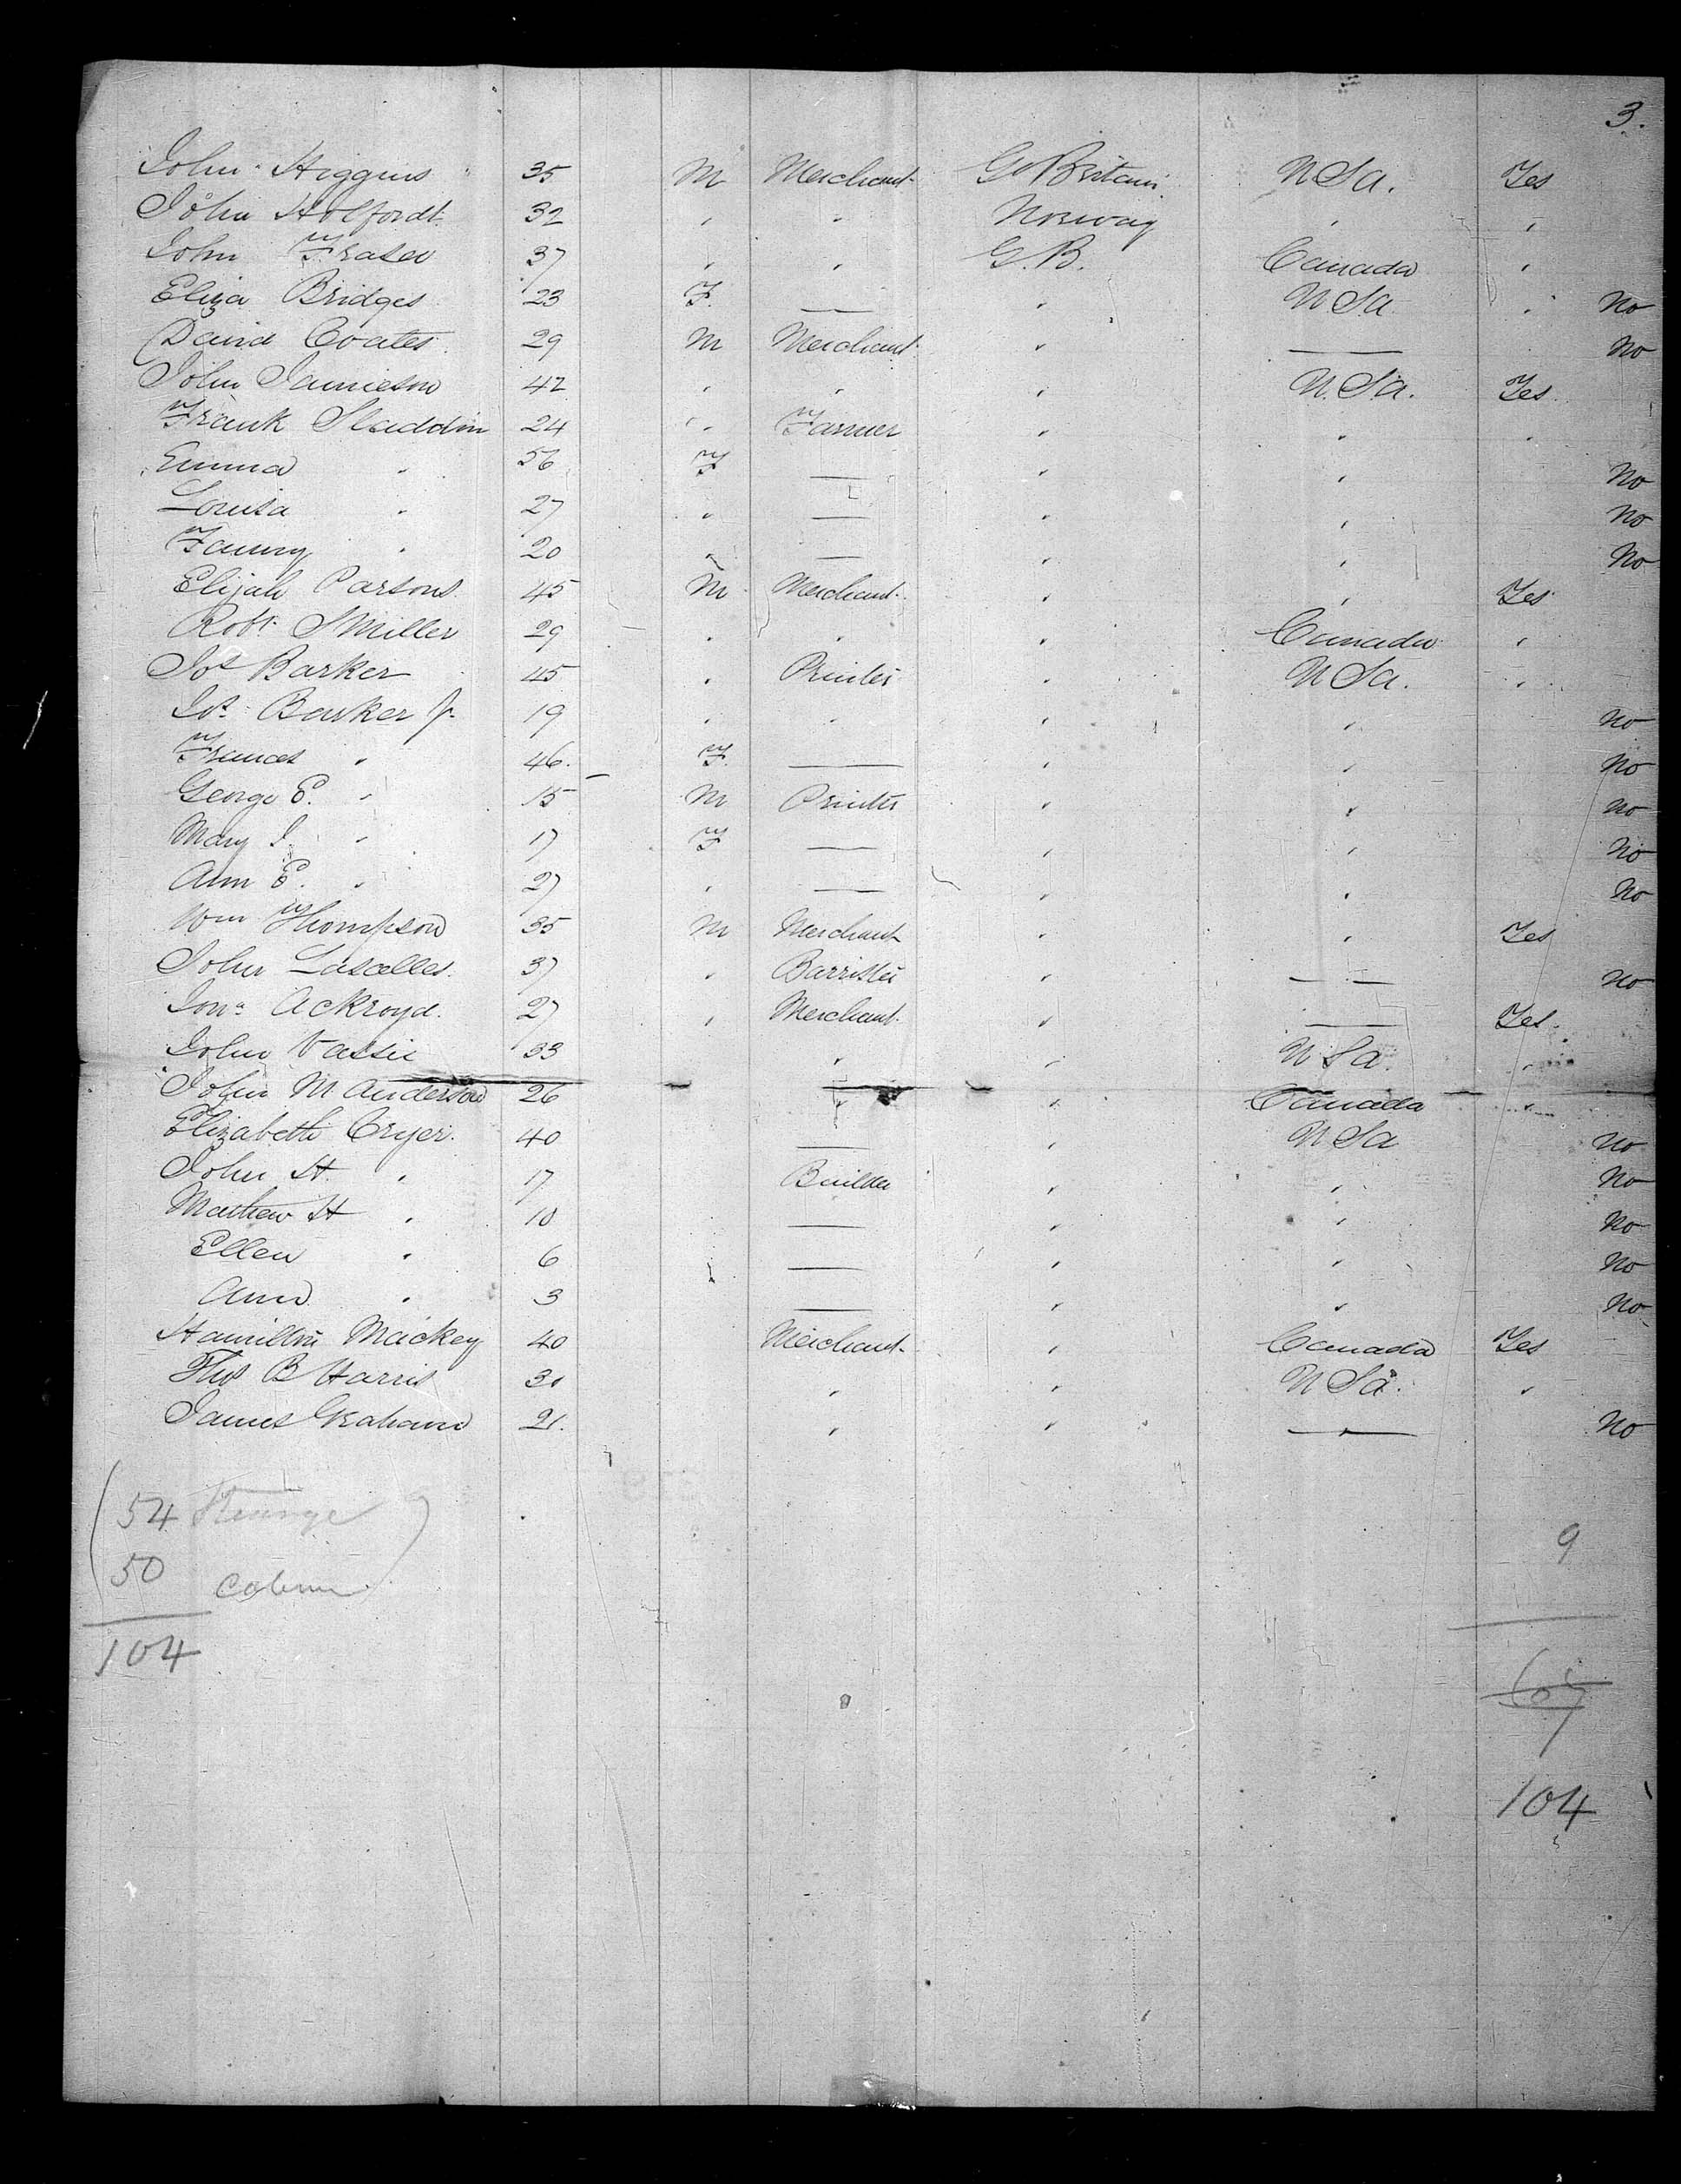 3.
John Higgins " 35 M Merchant Gt Britain U Sa. Yes
John Holfordt 32 " " Norway " "
John Fraser 37 " " G.B. Canada "
Eliza Bridges 23 F. — " U Sa " No
David Coates 29 M Merchant " — No
John Jamieson 42 " " " U. Sa. Yes
Frank Sladdin 24 " Farmer " " "
Emma " 56 F — " " No
Louisa " 27 " — " " No
Fanny " 20 " — " " No
Elijah Parsons 45 M Merchant " " Yes
Robt. S Miller 29 " " " Canada "
Jos Barker 45 " Printer " U Sa. "
Jos. Barker Jr. 19 " " " " No
Frances " 46. F. — " " No
George E. " 15 M Printer " " No
Mary J. " 17 F — " " No
Ann E. " 27 " — " " No
Wm Thompson 35 M Merchant " " Yes
John Lascelles. 37 " Barrister " — No
Jona Ackroyd. 27 " Merchant. " — Yes
John Vassie 33 " " U Sa. "
John M Anderson 26 " " Canada "
Elizabeth Cryer. 40 — " U Sa No
John H. " 17 Builder " " No
Mathew H " 10 — " " No
Ellen " 6 — " " No
Ann " 3 — " " No
Hamilton Mackey 40 Merchant. " Canada Yes
Thos B Harris 30 " " U Sa. "
James Graham 21. " " — No
(54 Steerage)
50 Cabin) 9
104
67
104